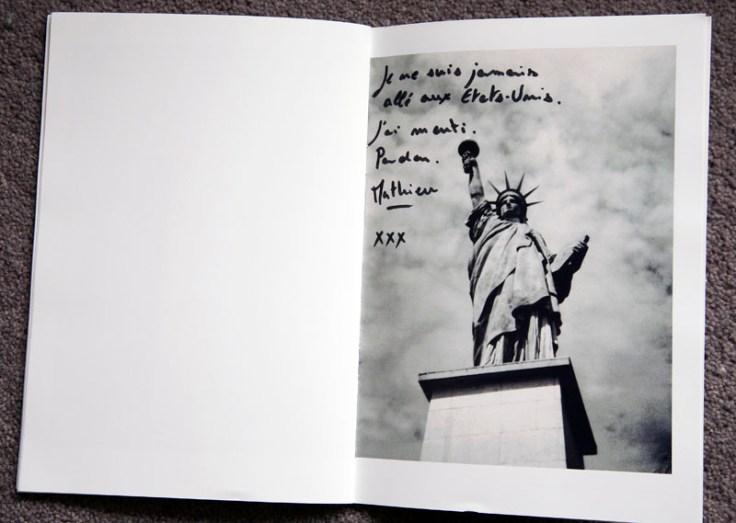 Je ne suis jamais
allé aux Etats-Unis.
J'ai menti.
Pardon.
Mathieu
xxx